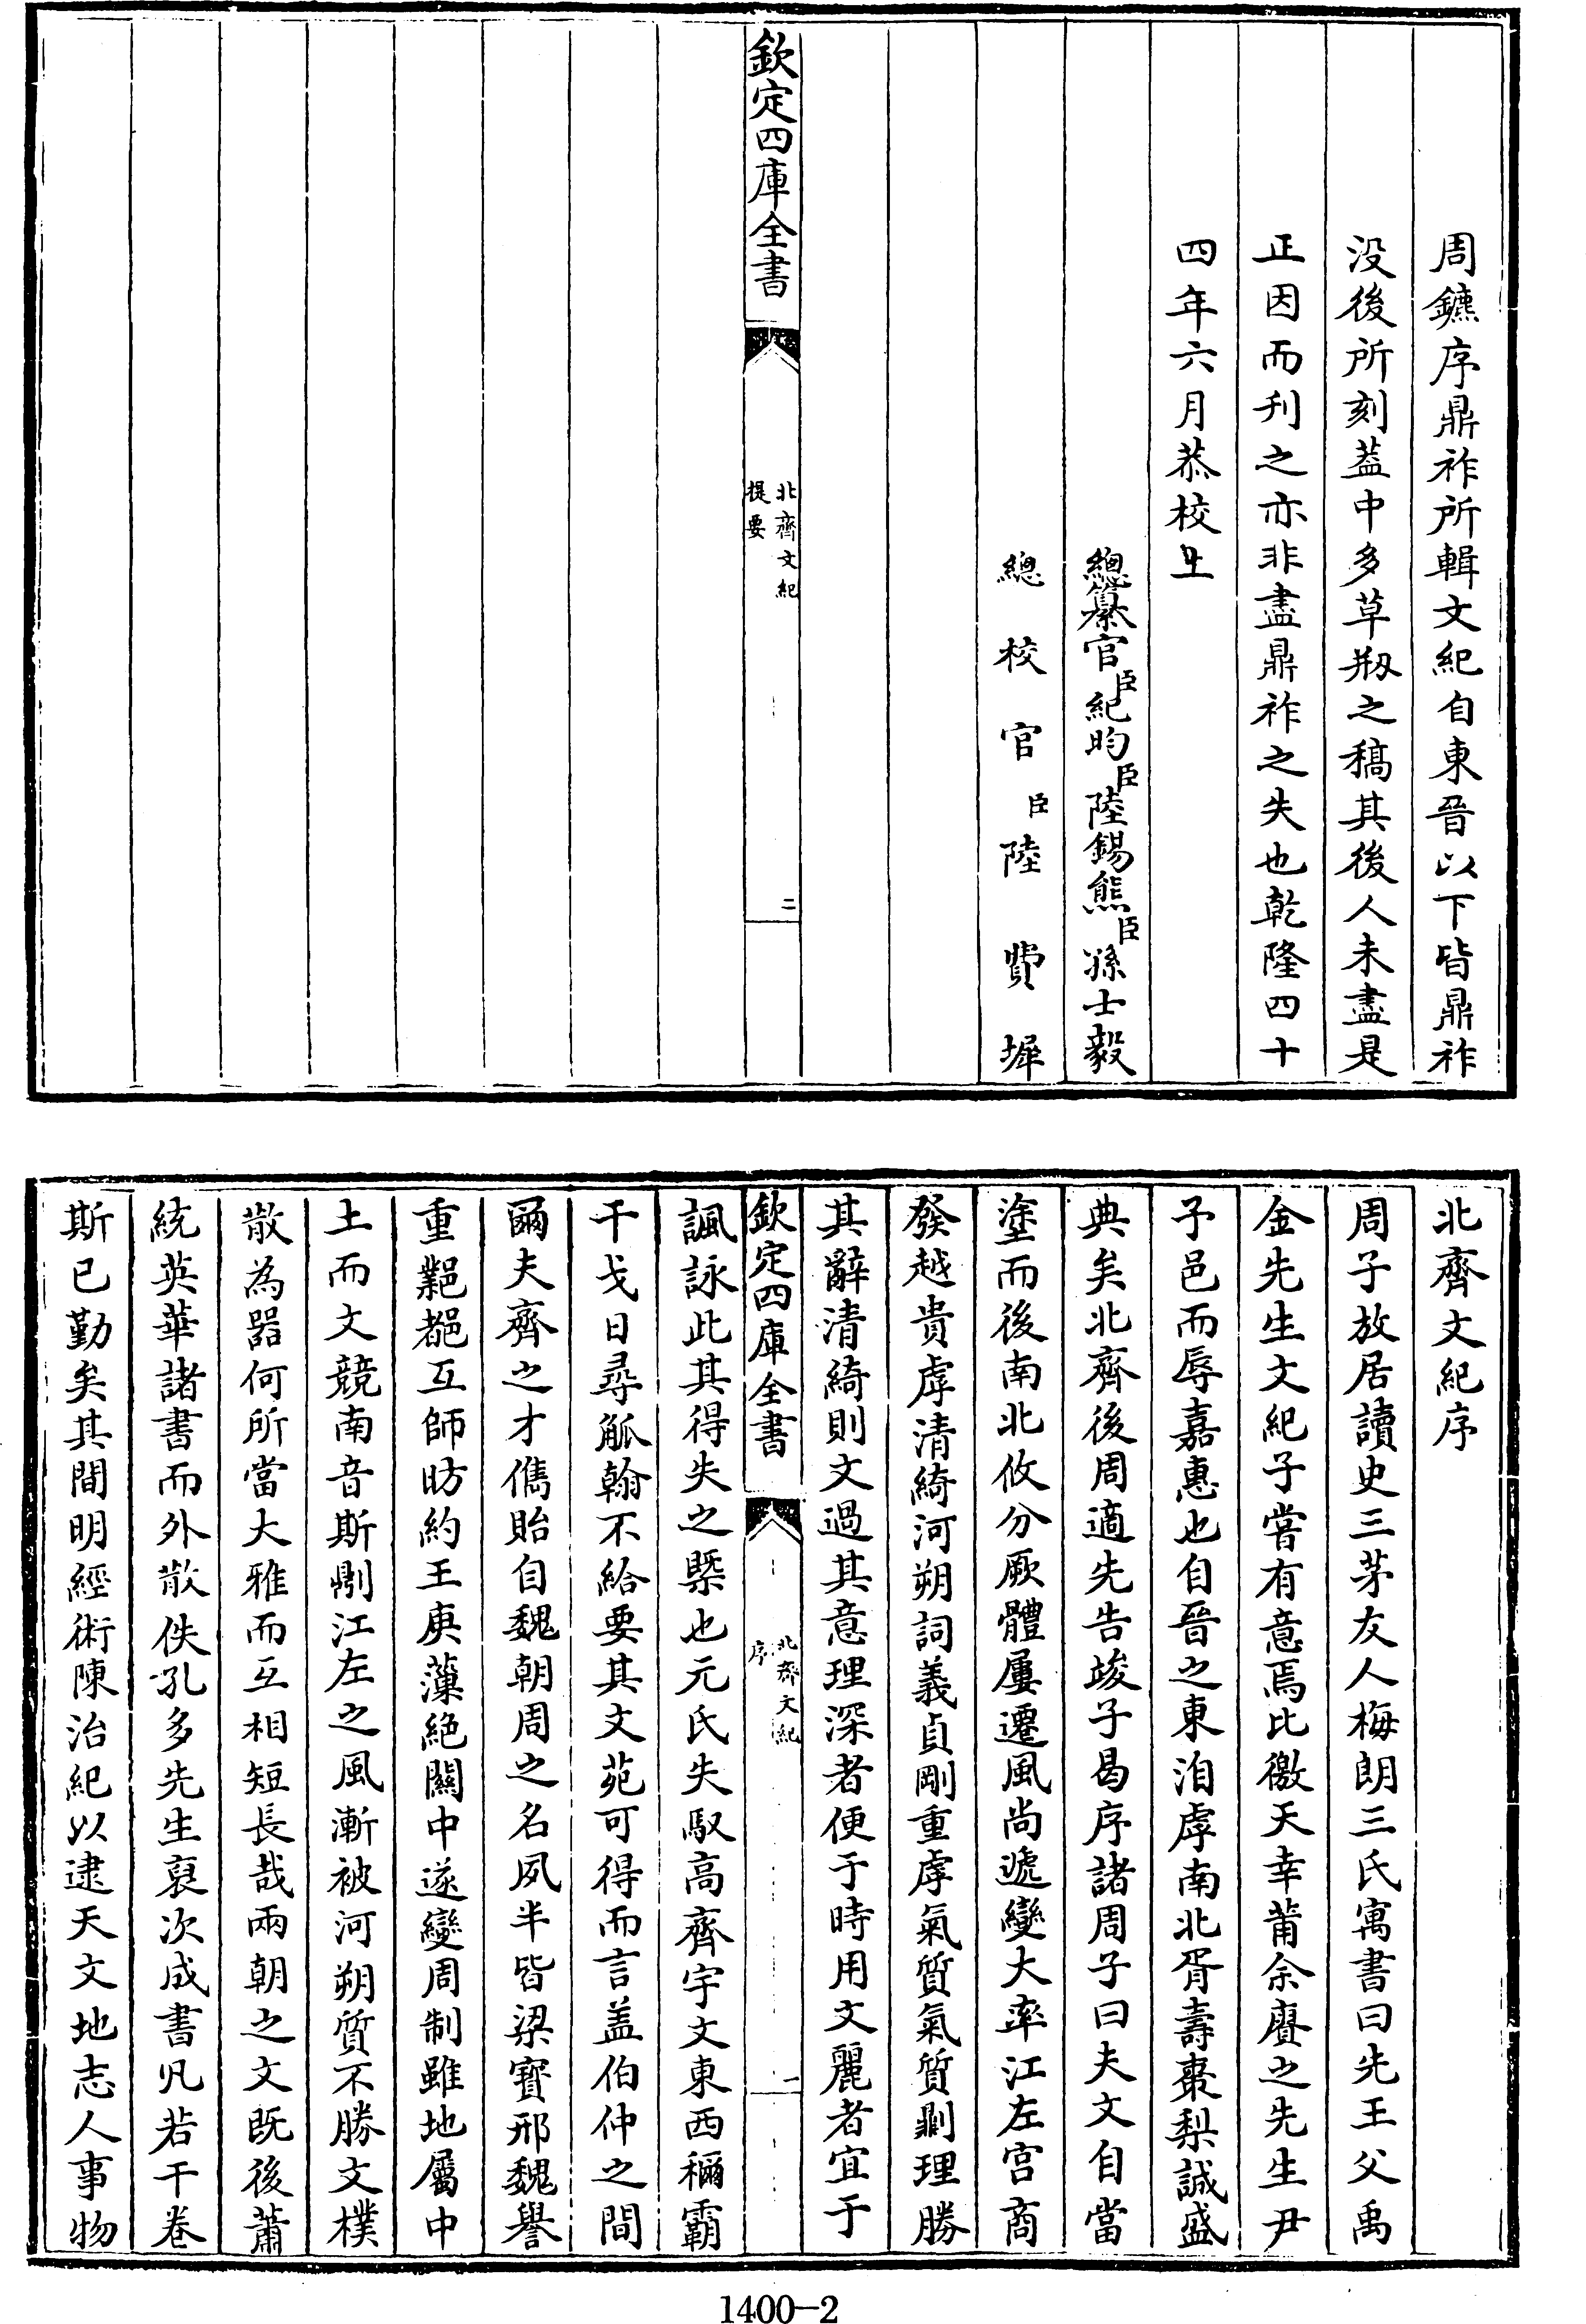 周鑣序鼎祚所輯文紀自東晉以下皆鼎祚
没後所刻葢中多草剏之稿其後人未盡是
正因而刋之亦非盡鼎祚之失也乾隆四十
四年六月恭校上
總纂官臣紀昀臣陸錫熊臣孫士毅
總校官臣陸費墀
欽定四庫全書
北齊文紀
提要
二
北齊文紀序
周子放居讀史三茅友人梅朗三氏寓書曰先王父禹
金先生文紀子嘗有意焉比徼天幸莆余賡之先生尹
予邑而辱嘉惠也自晉之東洎虖南北胥壽棗梨誠盛
典矣北齊後周適先告竣子曷序諸周子曰夫文自當
塗而後南北攸分厥體屢遷風尚遞變大率江左宫商
發越貴虖清綺河朔詞義貞剛重虖氣質氣質則理勝
其辭清綺則文過其意理深者便于時用文麗者宜于
欽定四庫全書
北齊文紀
序
一
諷詠此其得失之槩也元氏失馭高齊宇文東西稱霸
干戈日尋觚翰不給要其文苑可得而言盖伯仲之間
爾夫齊之才儁貽自魏朝周之名夙半皆梁寶邢魏譽
重鄴都互師昉約王庾藻絶關中遂變周制雖地屬中
土而文競南音斯則江左之風漸被河朔質不勝文樸
散為器何所當大雅而互相短長哉兩朝之文既後蕭
統英華諸書而外散佚孔多先生裒次成書凡若干卷
斯已勤矣其間明經術陳治紀以逮天文地志人事物
1400-2